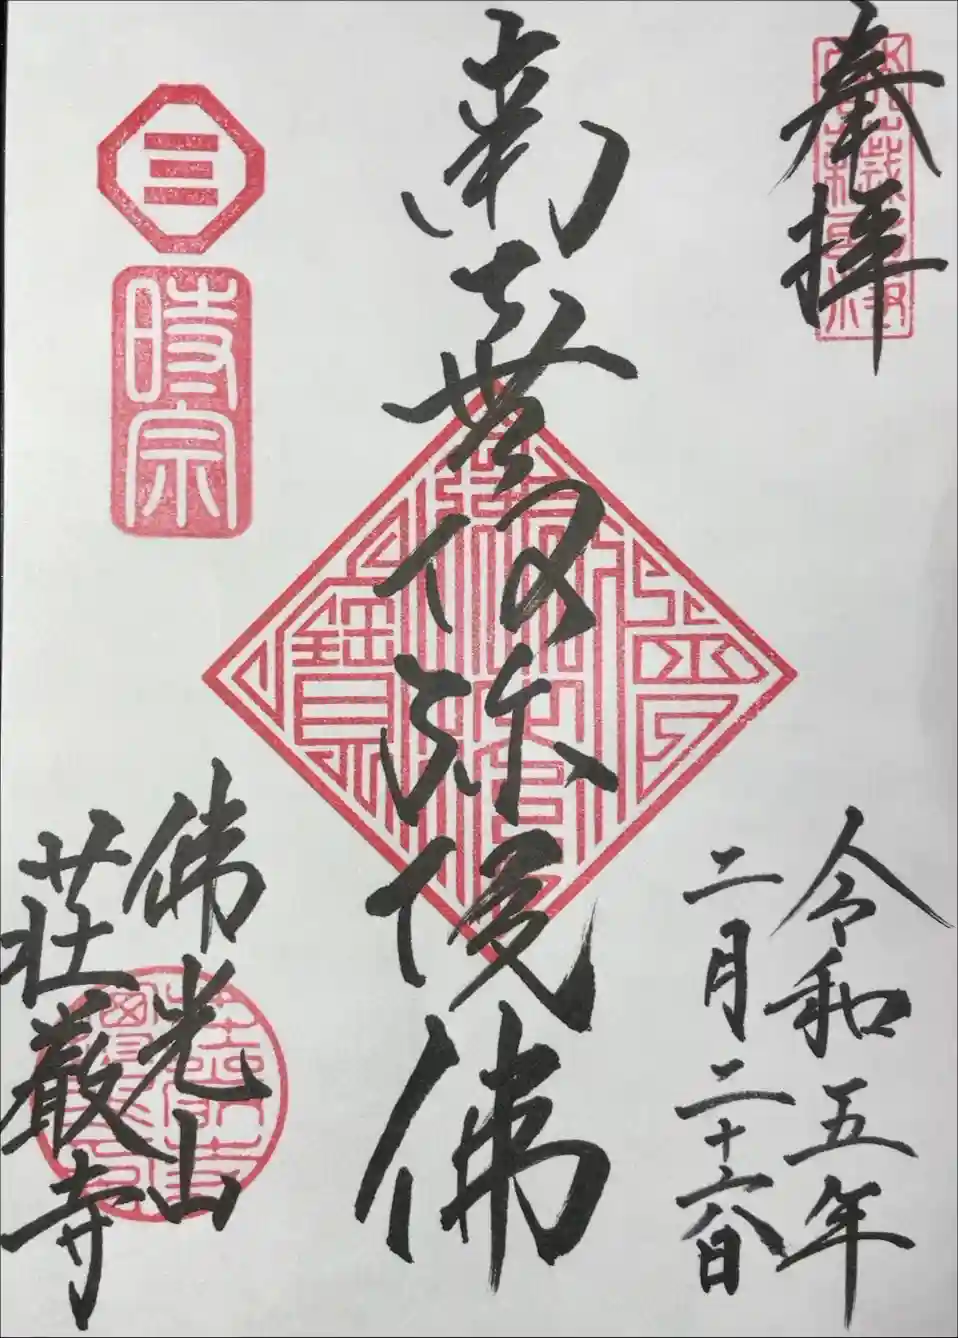 奉拝
令和五年
二月二十六日
南無阿弥陀佛
時宗
佛光山
荘厳寺